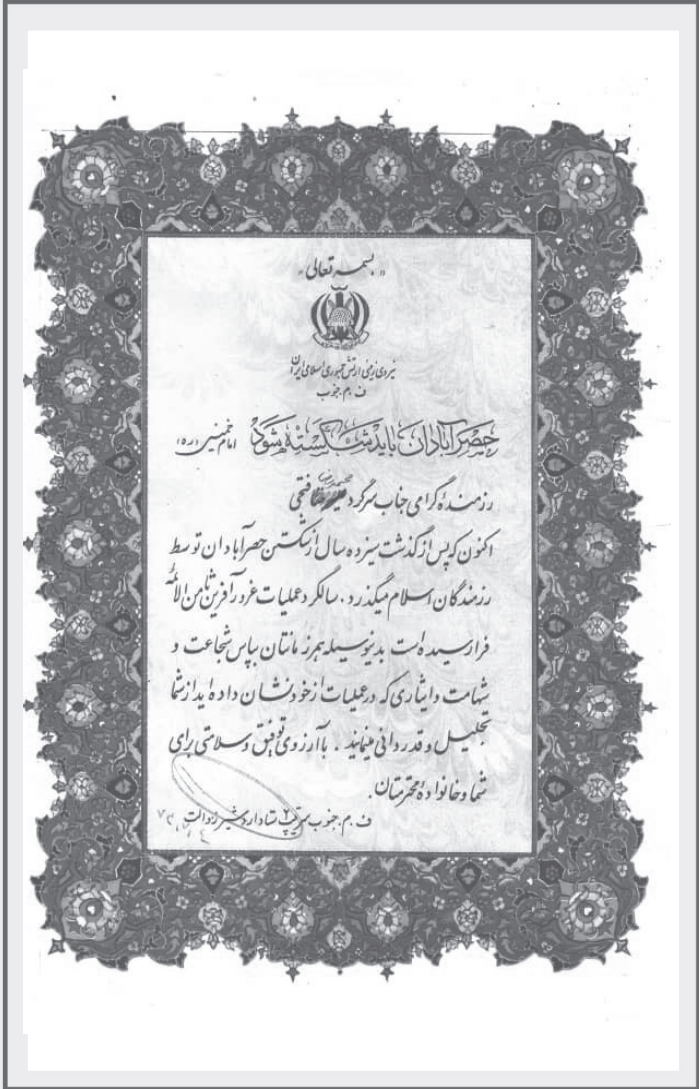 «بسمه تعالی»
نیروی زمینی ارتش جمهوری اسلامی ایران
ف.م.جنوب
حصر آبادان باید شکسته شود امام خمینی (ره)
رزمنده گرامی جناب سرگرد محمدرضا فتحی
اکنون که پس از گذشت سیزده سال از شکستن حصر آبادان توسط
رزمندگان اسلام میگذرد، سالگرد عملیات غرورآفرین ثامن الائمه
فرا رسیده است بدینوسیله همرزمانتان بپاس شجاعت و
شهامت و ایثاری که در عملیات از خود نشان داده اید از شما
تجلیل و قدردانی مینمایند. با آرزوی توفیق و سلامتی برای
شما و خانواده محترمتان.
ف.م.جنوب سرتیپ ۲ ستاد